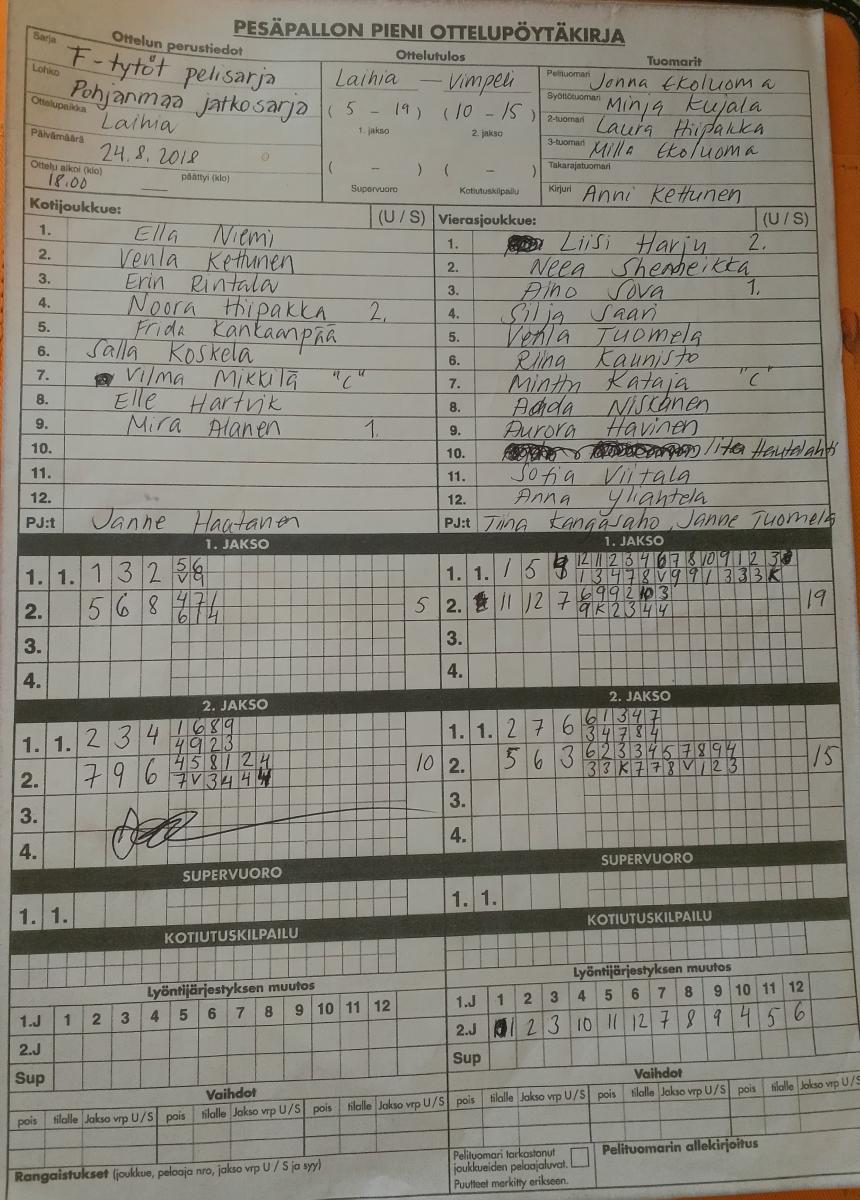 PESÄPALLON PIENI OTTELUPÖYTÄKIRJA
Ottelun perustiedot
Sarja F-tytöt pelisarja
Lohko Pohjanmaa jatkosarja
Ottelupaikka Laihia
Päivämäärä 24.8.2018
Ottelu alkoi (klo) 18.00 päättyi (klo)
Ottelutulos
Laihia – Vimpeli
(5 – 19) (10 – 15)
1. jakso 2. jakso
( – ) ( – )
Supervuoro Kotiutuskilpailu
Tuomarit
Pelituomari Jonna Ekoluoma
Syöttötuomari Minja Kujala
2-tuomari Laura Hiipakka
3-tuomari Milla Ekoluoma
Takarajatuomari
Kirjuri Anni Kettunen
Kotijoukkue: (U / S)
1. Ella Niemi
2. Venla Kettunen
3. Erin Rintala
4. Noora Hiipakka 2.
5. Frida Kankaanpää
6. Salla Koskela
7. Vilma Mikkilä "C"
8. Elle Hartvik
9. Mira Alanen 1.
10.
11.
12.
PJ:t Janne Haatanen
Vierasjoukkue: (U / S)
1. Liisi Harju 2.
2. Neea
3. Aino Sova 1.
4. Silja Saari
5. Venla Tuomela
6. Riina Kaunisto
7. Minttu Kataja "C"
8. Niskanen
9. Aurora Havinen
10. Iita Hautalahti
11. Sofia Viitala
12. Anna
PJ:t Tiina Kangasaho, Janne Tuomela
1. JAKSO
1. 1. 1 3 2 5 6
V 9
2. 5 6 8 4 7 1 5
6 1 4
3.
4.
1. JAKSO
1. 1. 1 5 12 11 2 3 4 6 7 8 10 9 1 2 3
1 3 4 7 8 V 9 9 1 3 3 3 K
2. 11 12 7 6 9 9 2 10 3 19
9 K 2 3 4 4
3.
4.
2. JAKSO
1. 1. 2 3 4 1 6 8 9
4 9 2 3
2. 7 9 6 4 5 8 1 2 4 10
7 V 3 4 4 4
3.
4.
2. JAKSO
1. 1. 2 7 6 6 1 3 4 7
3 4 7 8 4
2. 5 6 3 6 2 3 3 4 5 7 8 9 4 15
3 3 K 7 7 8 V 1 2 3
3.
4.
SUPERVUORO
1. 1.
SUPERVUORO
1. 1.
KOTIUTUSKILPAILU
KOTIUTUSKILPAILU
Lyöntijärjestyksen muutos
1.J 1 2 3 4 5 6 7 8 9 10 11 12
2.J
Sup
Lyöntijärjestyksen muutos
1.J 1 2 3 4 5 6 7 8 9 10 11 12
2.J 1 2 3 10 11 12 7 8 9 4 5 6
Sup
Vaihdot
pois tilalle Jakso vrp U / S pois tilalle Jakso vrp U / S pois tilalle Jakso vrp U / S
Vaihdot
pois tilalle Jakso vrp U / S pois tilalle Jakso vrp U / S pois tilalle Jakso vrp U / S
Rangaistukset (joukkue, pelaaja nro, jakso vrp U / S ja syy)
Pelituomari tarkastanut
joukkueiden pelaajaluvat.
Puutteet merkitty erikseen.
Pelituomarin allekirjoitus